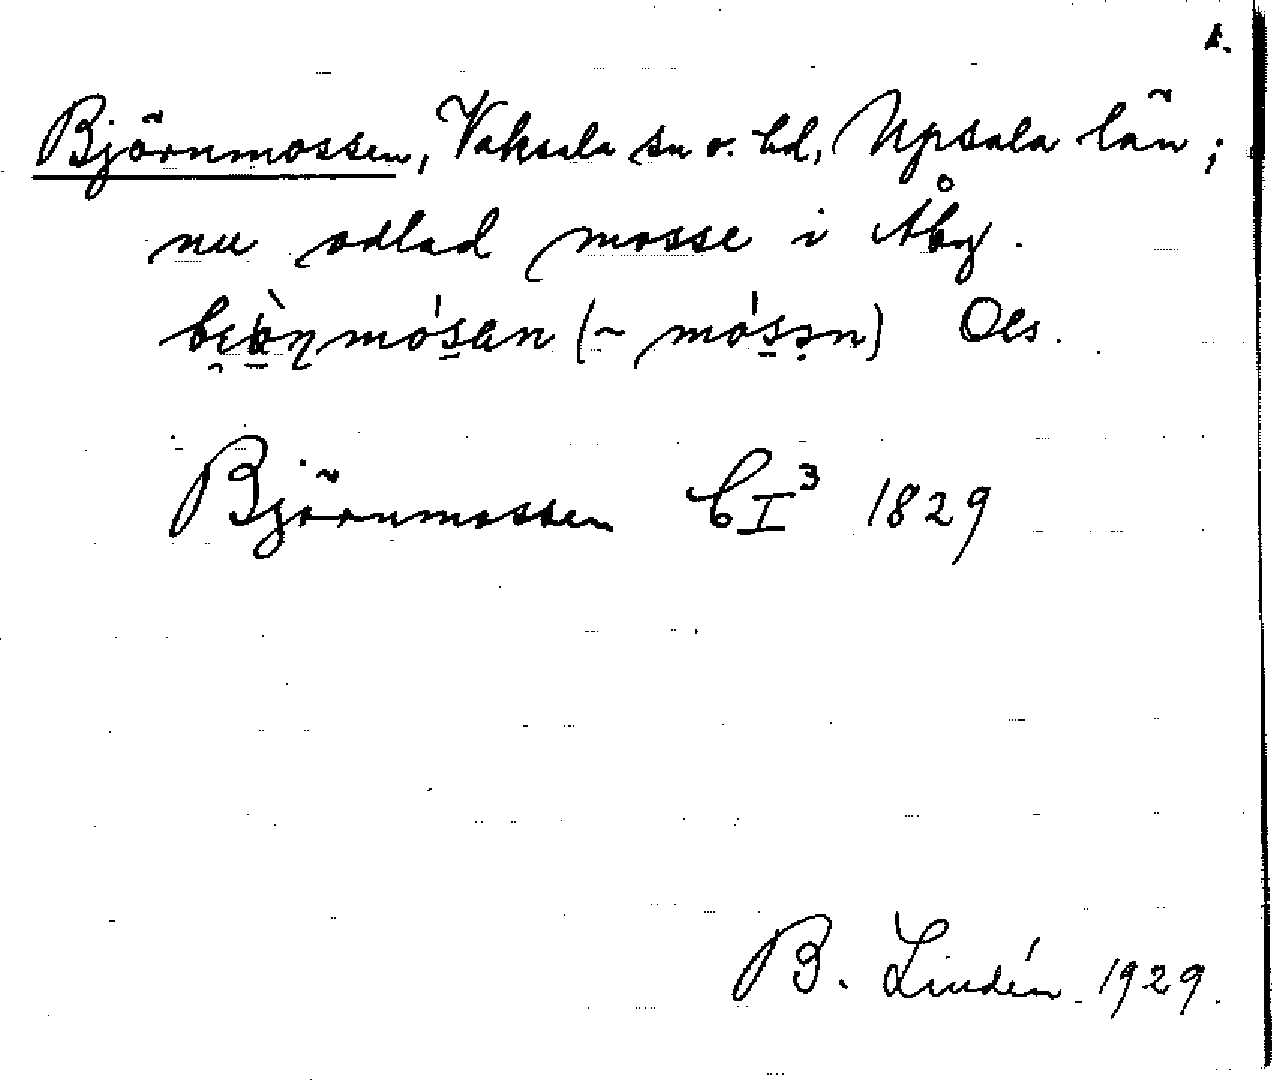 Björnmossen, Vaksala sn o. hd, Upsala län;
nu odlad mosse i Åby.
(~ Ols.
Björnmossen CI³ 1829
B. Lindén 1929.